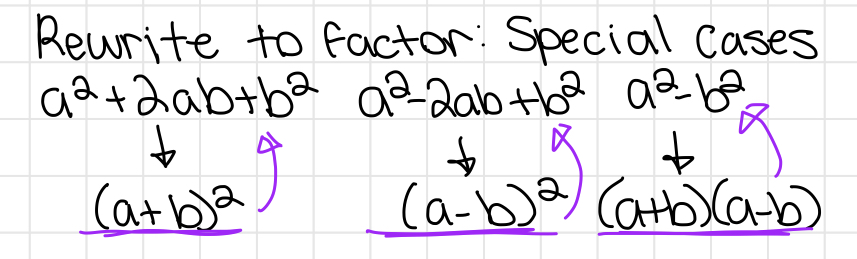 Rewrite to factor: Special Cases
a²+2ab+b² a²-2ab+b² a²-b²
↓ ↓ ↓
(a+b)² (a-b)² (a+b)(a-b)